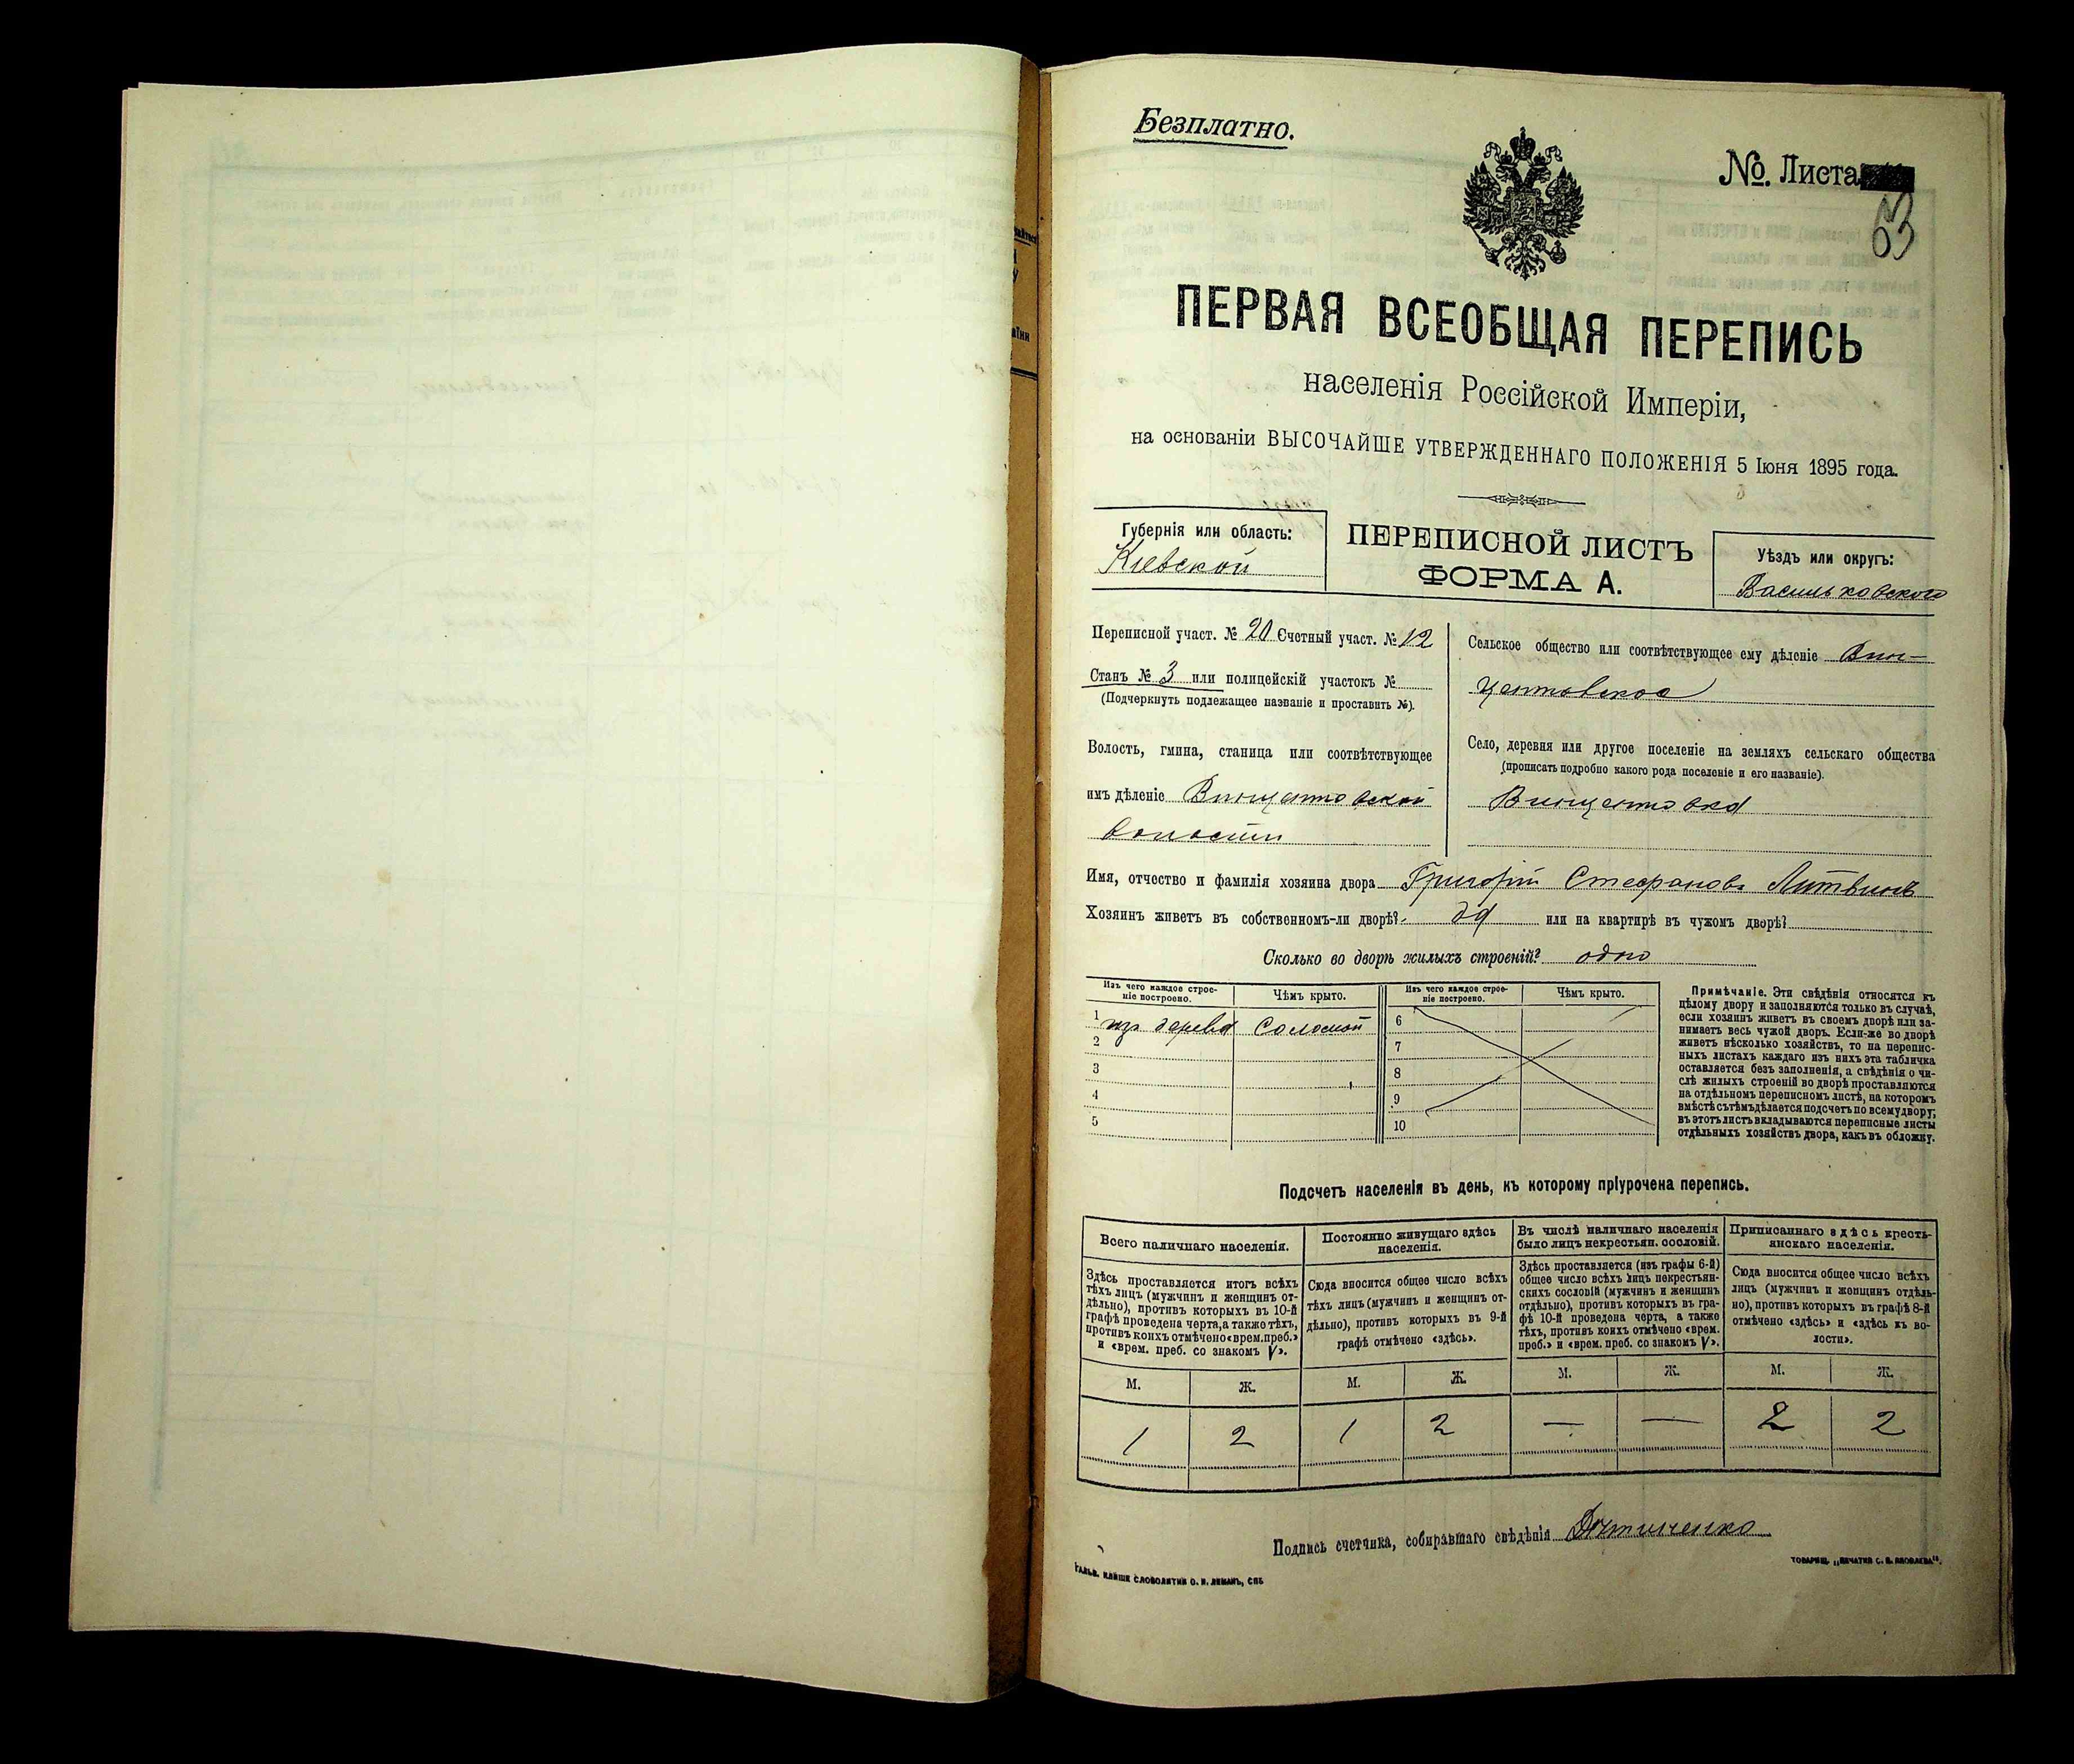 Безплатно.
№. Листа
63
ПЕРВАЯ ВСЕОБЩАЯ ПЕРЕПИСЬ
населенія Россійской Имперіи,
на основаніи ВЫСОЧАЙШЕ УТВЕРЖДЕННАГО ПОЛОЖЕНІЯ 5 Іюня 1895 года.
Губернія или область:
Кіевской
ПЕРЕПИСНОЙ ЛИСТЪ
ФОРМА А.
Уѣздъ или округъ:
Васильковскаго
Переписной участ. № 20 Счетный участ. № 12
Станъ № 3 или полицейскій участокъ №
(Подчеркнуть подлежащее названіе и проставить №).
Волость, гмина, станица или соотвѣтствующее
имъ дѣленіе Винцентовской
волости
Сельское общество или соотвѣтствующее ему дѣленіе Вин-
центовское
Село, деревня или другое поселеніе на земляхъ сельскаго общества
(прописать подробно какого рода поселеніе и его названіе).
Винцентовка
Имя, отчество и фамилія хозяина двора Григорій Стефановъ Литвинъ
Хозяинъ живетъ въ собственномъ-ли дворѣ? да или на квартирѣ въ чужомъ дворѣ?
Сколько во дворѣ жилыхъ строеній? одно
Изъ чего каждое строе-
ніе построено.
Чѣмъ крыто.
Изъ чего каждое строе-
ніе построено.
Чѣмъ крыто.
1 изъ дерева соломой
2
3
4
5
6
7
8
9
10
Примѣчаніе. Эти свѣдѣнія относятся къ
цѣлому двору и заполняются только въ случаѣ,
если хозяинъ живетъ въ своемъ дворѣ или за-
нимаетъ весь чужой дворъ. Если-же во дворѣ
живетъ нѣсколько хозяйствъ, то на перепис-
ныхъ листахъ каждаго изъ нихъ эта табличка
оставляется безъ заполненія, а свѣдѣнія о чи-
слѣ жилыхъ строеній во дворѣ проставляются
на отдѣльномъ переписномъ листѣ, на которомъ
вмѣстѣ съ тѣмъ дѣлается подсчетъ по всему двору;
въ этотъ листъ вкладываются переписные листы
отдѣльныхъ хозяйствъ двора, какъ въ обложку.
Подсчетъ населенія въ день, къ которому пріурочена перепись.
Всего наличнаго населенія.
Здѣсь проставляется итогъ всѣхъ
тѣхъ лицъ (мужчинъ и женщинъ от-
дѣльно), противъ которыхъ въ 10-й
графѣ проведена черта, а также тѣхъ,
противъ коихъ отмѣчено «врем. преб.»
и «врем. преб. со знакомъ V».
Постоянно живущаго здѣсь
населенія.
Сюда вносится общее число всѣхъ
тѣхъ лицъ (мужчинъ и женщинъ от-
дѣльно), противъ которыхъ въ 9-й
графѣ отмѣчено «здѣсь».
Въ числѣ наличнаго населенія
было лицъ некрестьян. сословій.
Здѣсь проставляется (изъ графы 6-й)
общее число всѣхъ лицъ некрестьян-
скихъ сословій (мужчинъ и женщинъ
отдѣльно), противъ которыхъ въ гра-
фѣ 10-й проведена черта, а также
тѣхъ, противъ коихъ отмѣчено «врем.
преб.» и «врем. преб. со знакомъ V».
Приписаннаго здѣсь кресть-
янскаго населенія.
Сюда вносится общее число всѣхъ
лицъ (мужчинъ и женщинъ отдѣль-
но), противъ которыхъ въ графѣ 8-й
отмѣчено «здѣсь» и «здѣсь къ во-
лости».
М. Ж. М. Ж. М. Ж. М. Ж.
1 2 1 2 — — 2 2
Подпись счетчика, собиравшаго свѣдѣнія
ГАЛЬВ. КЛИШЕ СЛОВОЛИТНИ О. И. ЛЕМАНЪ, СПБ
ТОВАРИЩ. „ПЕЧАТНЯ С. П. ЯКОВЛЕВА".